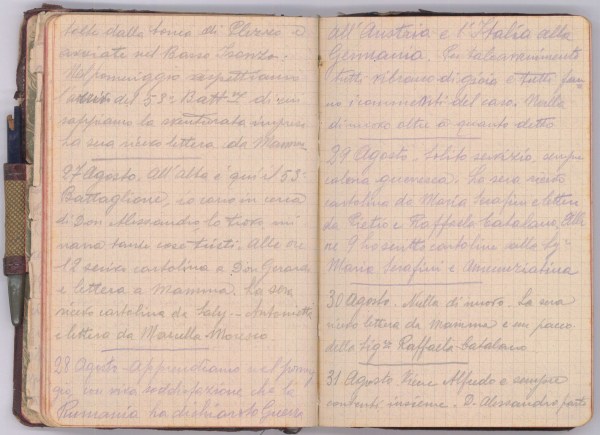 tolte dalla conca di Plezzo e
avviate nel Basso Isonzo.
Nel pomeriggio aspettiamo
del 53º Batt. di cui
sappiamo la sventurata impresa
La sera ricevo lettera da Mamma
27 Agosto. All'alba è qui il 53º
Battaglione, io corro in cerca
di Don Alessandro, lo trovo, mi
narra tante cose tristi. Alle ore
12 scrivo cartolina a Don Gerardo
e lettera a Mamma. La sera
ricevo cartolina da Antonietta
e lettera da Marcella
28 Agosto. Apprendiamo nel pomeri
gio, con viva soddisfazione che la
Rumania ha dichiarato Guerra
all'Austria e l'Italia alla
Germania. Per tale avvenimento
tutti vibrano di gioia e tutti fan
no i commenti del caso. Nulla
di nuovo oltre a quanto detto
29 Agosto. Solito servizio, sempre
calma guerresca. La sera ricevo
cartolina da Maria Serafini e lettere
da Pietro e Raffaela Catalano. Alle
ore 9 ho scritto cartoline alla Sig.na
Maria Serafini e Annunziatina
30 Agosto. Nulla di nuovo. La sera
ricevo lettera da Mamma e un pacco
della Sig.na Raffaela Catalano
31 Agosto. Viene Alfredo e sempre
contenti insieme. D. Alessandro parte